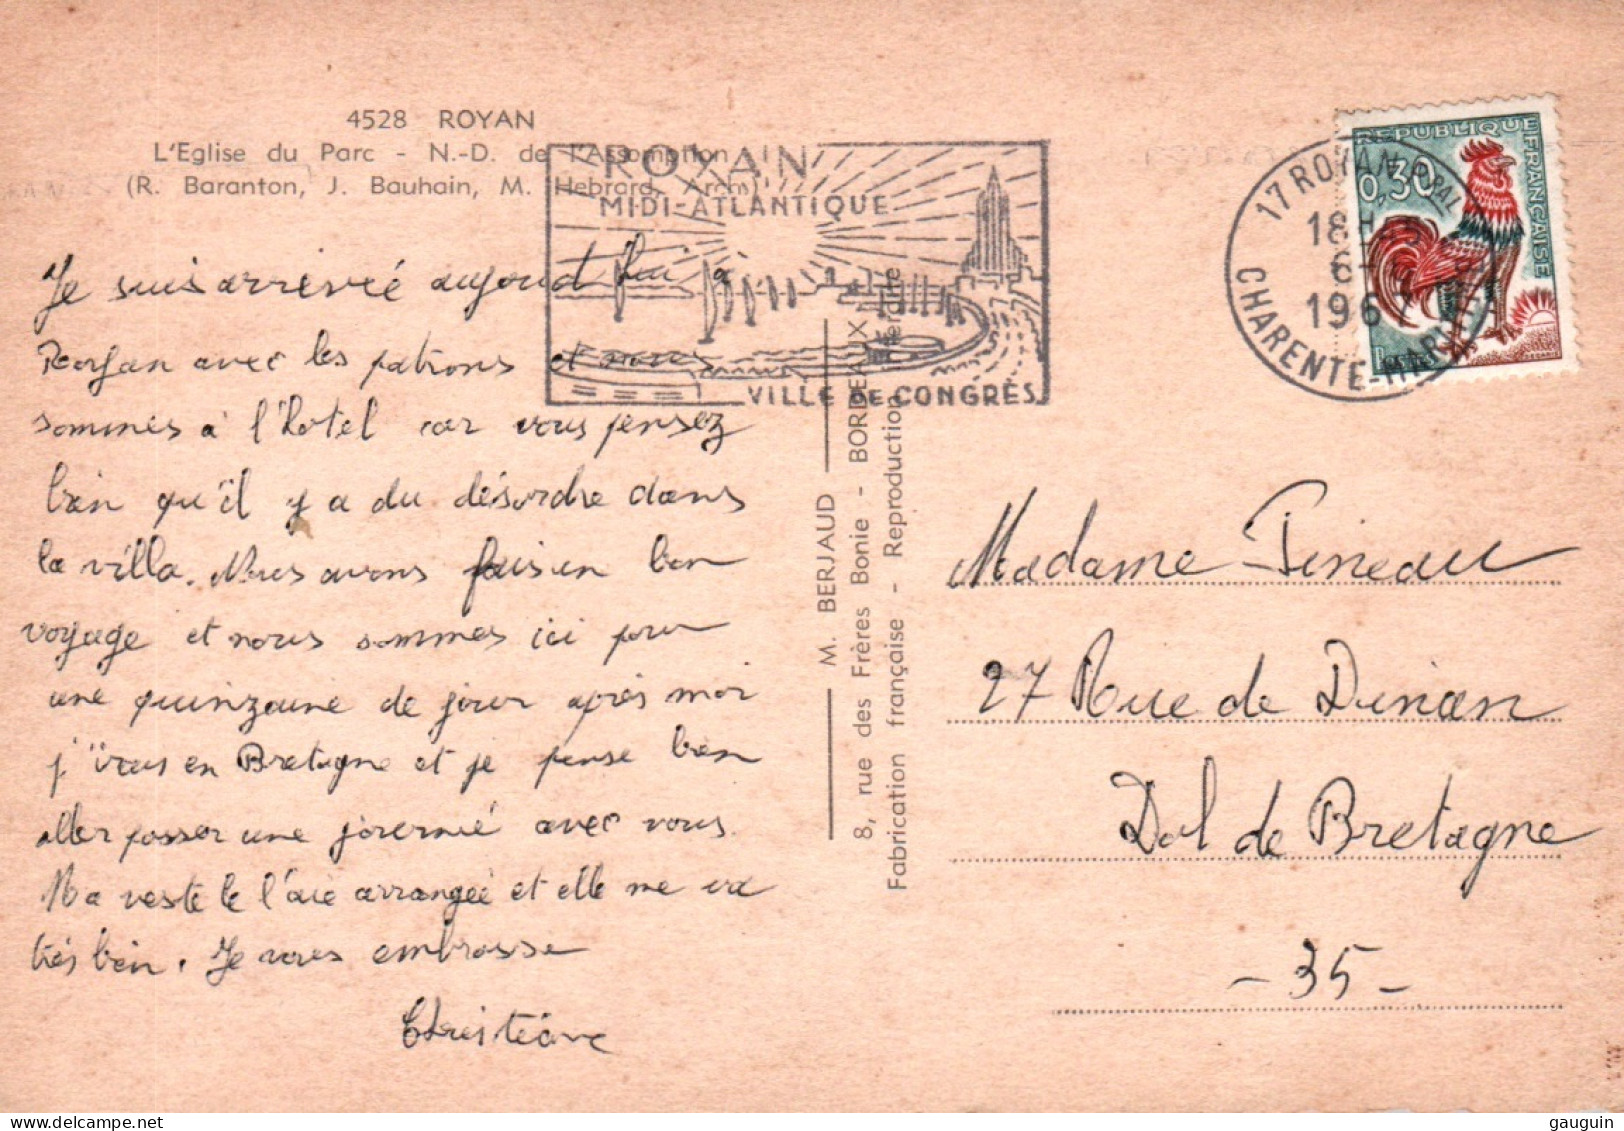 4528 ROYAN
L'Eglise du Parc - N.-D. de l'Assomption
(R. Baranton, J. Bauhain, M. Hebrard, Arch.)
ROYAN
MIDI-ATLANTIQUE
VILLE DE CONGRÈS
17 ROYAN PPAL
18H
6-
1967
CHARENTE-MARITIME
REPUBLIQUE FRANÇAISE
0,30
Postes
Je suis arrivée aujourd'hui à
Royan avec les patrons et nous
sommes à l'hotel car vous pensez
bien qu'il y a du désordre dans
la villa. Nous avons fais un bon
voyage et nous sommes ici pour
une quinzaine de jour après moi
j'irais en Bretagne et je pense bien
aller passer une journeé avec vous.
Ma veste je l'aie arrangeé et elle me va
très bien. Je vous embrasse
Christiane
M. BERJAUD
8, rue des Frères Bonie - BORDEAUX
Fabrication française - Reproduction interdite
Madame Pineau
27 Rue de Dinan
Dol de Bretagne
- 35 -
gauguin